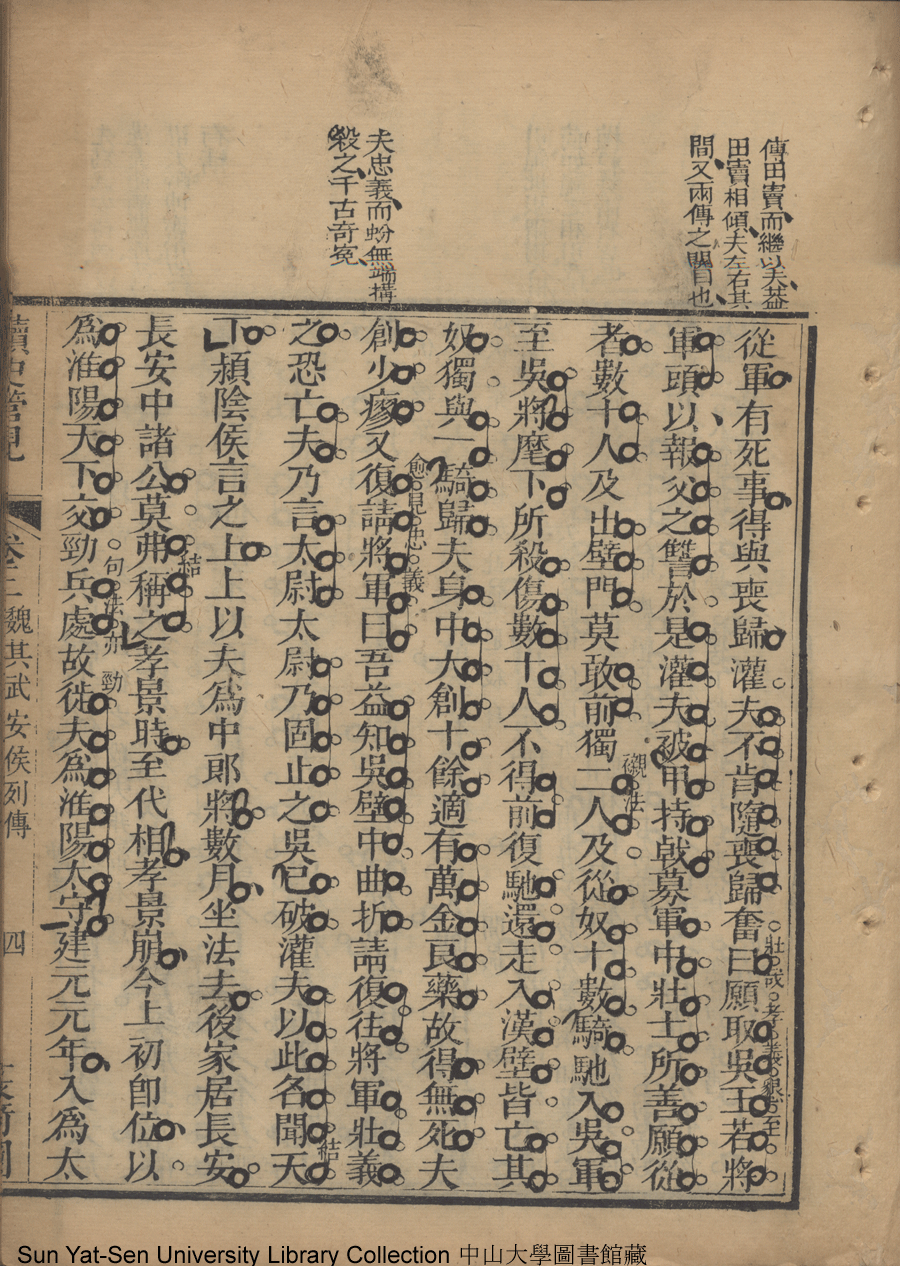 傳田竇而繼以夫益
田竇相傾夫左右其
間又兩傳之關目也
夫忠義而蚡無端搆
殺之千古奇冤
從軍有死事得與喪歸灌夫不肯隨喪歸奮曰願取吳王若將
軍頭以報父之讐於是灌夫被甲持戟募軍中壯士所善願從
者數十人及出壁門莫敢前獨二人及從奴十數騎馳入吳軍
至吳將麾下所殺傷數十人不得前復馳還走入漢壁皆亡其
奴獨與一騎歸夫身中大創十餘適有萬金良藥故得無死夫
愈見忠義
創少瘳又復請將軍曰吾益知吳壁中曲折請復往將軍壯義
之恐亡夫乃言太尉太尉乃固止之吳已破灌夫以此名聞天
結
下潁陰侯言之上上以夫爲中郎將數月坐法去後家居長安
長安中諸公莫弗稱之孝景時至代相孝景崩今上初卽位以
結
爲淮陽天下交勁兵處故徙夫爲淮陽太守建元元年入爲太
句法亦勁
讀史管見
卷三
魏其武安侯列傳
四
Sun Yat-Sen University Library Collection 中山大學圖書館藏